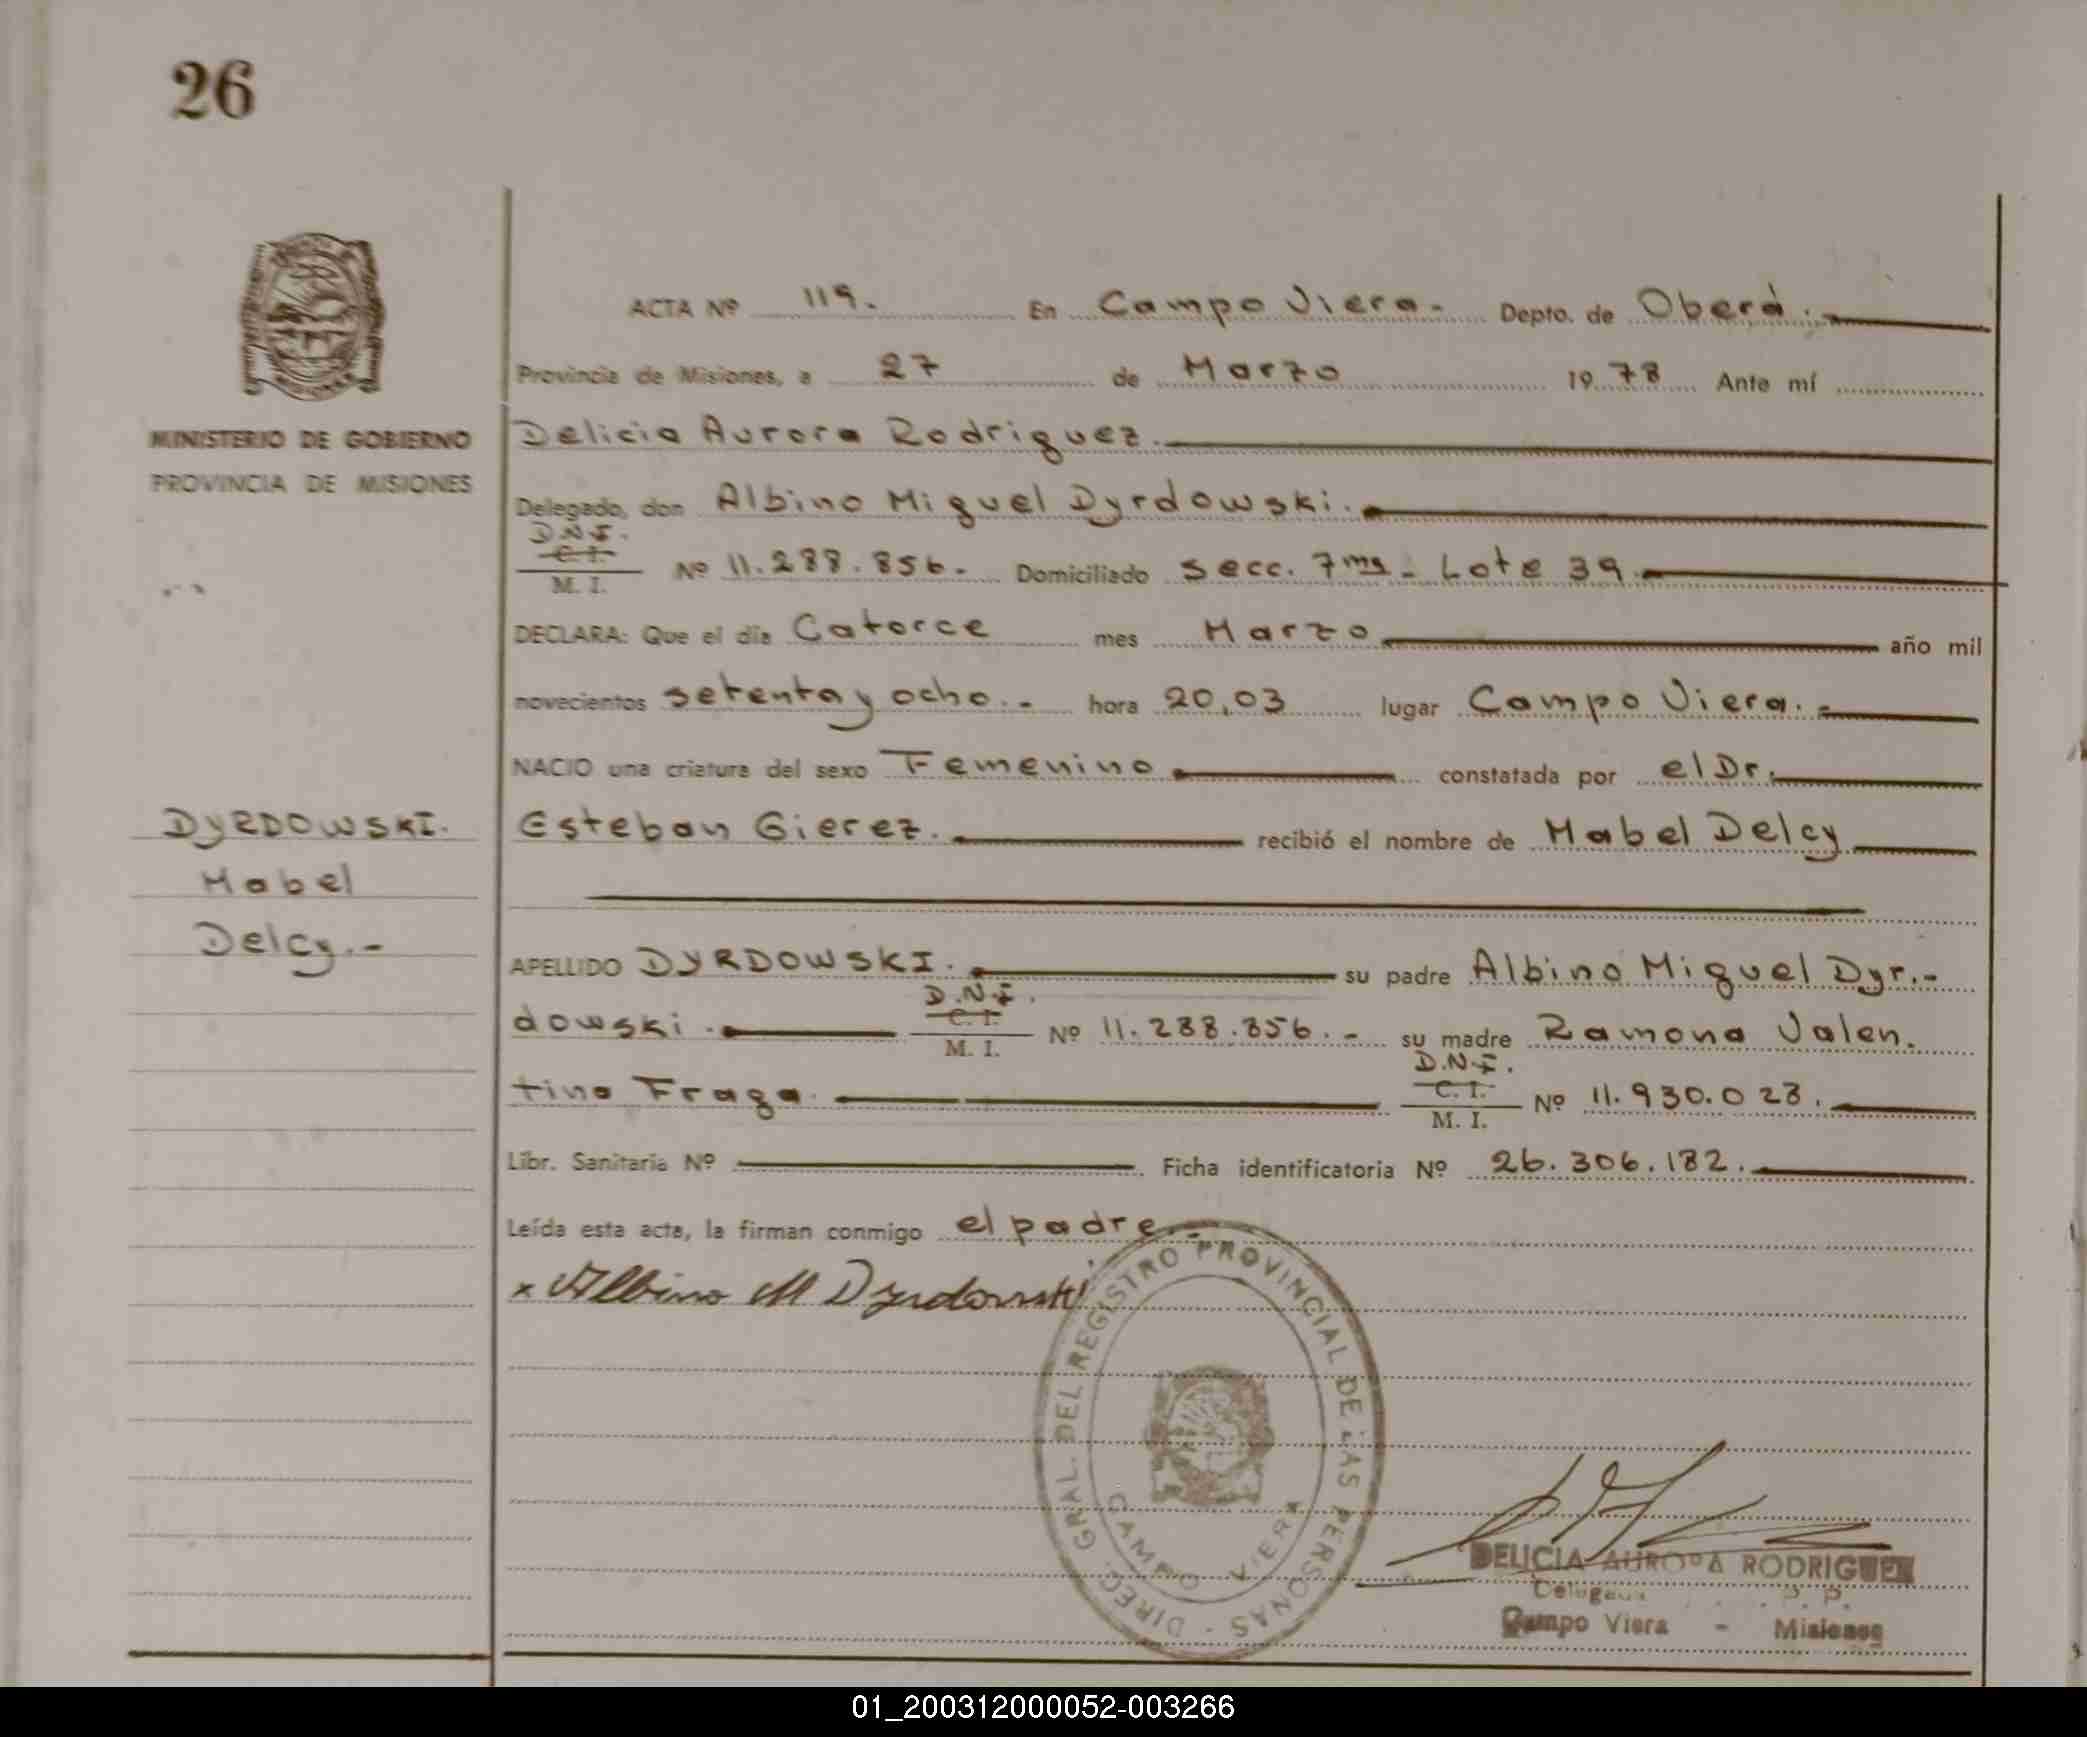 26
ACTA Nº 119. En Campo Viera.- Depto. de Oberá.-
Provincia de Misiones, a 27 de Marzo 19 78 Ante mí
MINISTERIO DE GOBIERNO
PROVINCIA DE MISIONES
Delicia Aurora Rodriguez.
Delegado, don Albino Miguel Dyrdowski.
D.N.I.
C. I.
M. I.
Nº 11.288.856.- Domiciliado Secc. 7ma - Lote 39.
DECLARA: Que el día Catorce mes Marzo año mil
novecientos setenta y ocho.- hora 20,03 lugar Campo Viera.-
NACIO una criatura del sexo Femenino constatada por el Dr.
DYRDOWSKI.
Mabel
Delcy.-
Esteban Gierez. recibió el nombre de Mabel Delcy
APELLIDO DYRDOWSKI. su padre Albino Miguel Dyr.-
D.N.I.
dowski. C. I. Nº 11.288.856.- su madre Ramona Valen.
M. I.
D.N.I.
tina Fraga. C. I. Nº 11.930.028.
M. I.
Libr. Sanitaria Nº Ficha identificatoria Nº 26.306.182.
Leída esta acta, la firman conmigo el padre.-
x Albino M Dyrdowski
DIREC. GRAL. DEL REGISTRO PROVINCIAL DE LAS PERSONAS -
CAMPO VIERA
DELICIA AURORA RODRIGUEZ
Campo Viera - Misiones
01_200312000052-003266